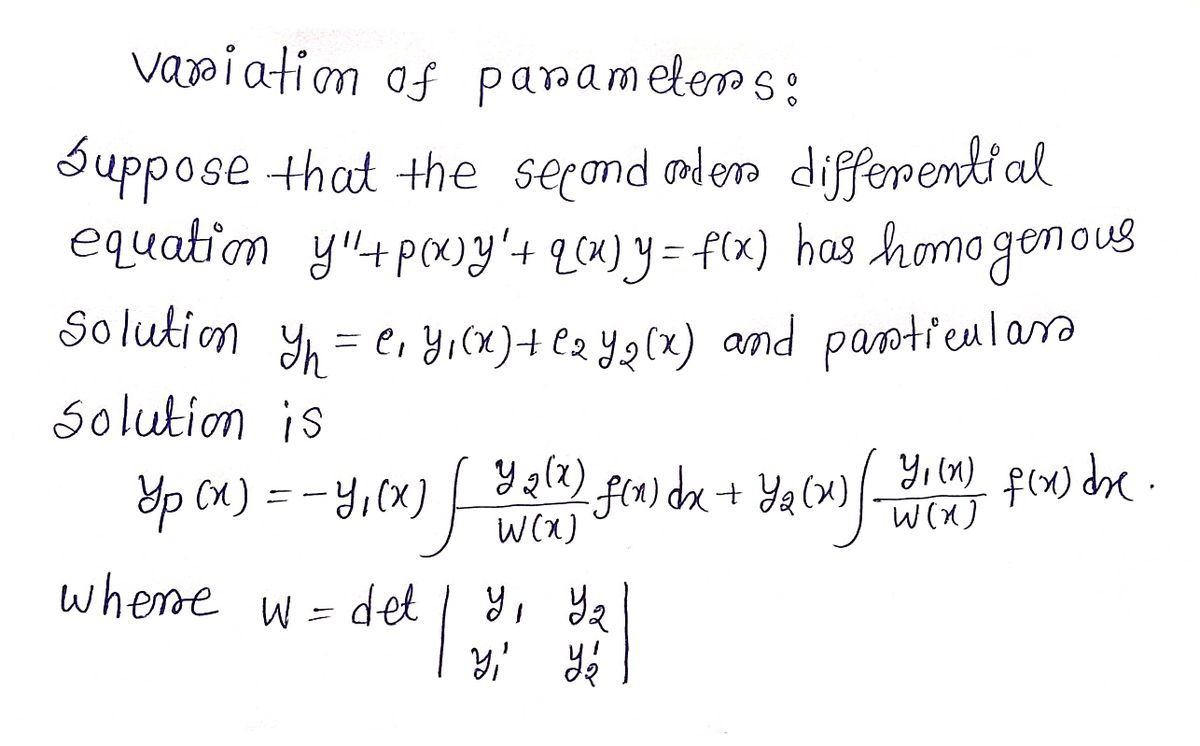 Variation of parameters:
Suppose that the second order differential
equation y''+p(x)y'+q(x)y=f(x) has homogenous
solution yₕ = c₁ y₁(x)+c₂ y₂(x) and particular
solution is
yp(x) = -y₁(x) ∫ y₂(x)/W(x) f(x) dx + y₂(x) ∫ y₁(x)/W(x) f(x) dx.
where W = det | y₁ y₂ |
| y₁' y₂' |